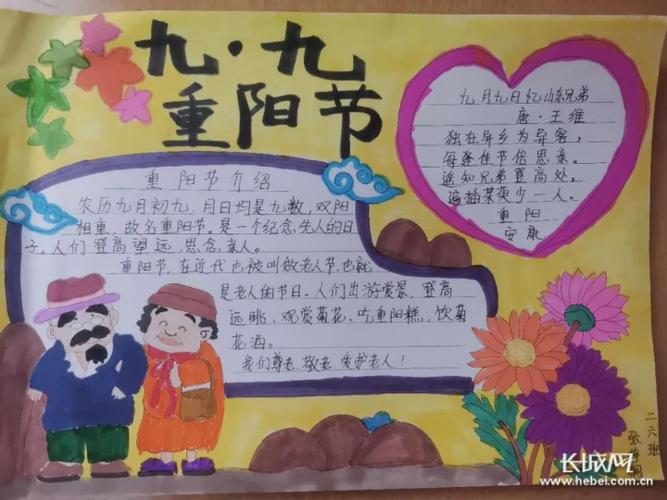 九·九
重阳节
重阳节介绍
农历九月初九，月日均是九数，双阳
相重，故名重阳节。是一个纪念先人的日
子。人们登高望远，思念亲人。
重阳节，在近代也被叫做老人节，也就
是老人的节日。人们出游赏景，登高
远眺、观赏菊花、吃重阳糕，饮菊
花酒。
我们尊老、敬老、爱护老人！
九月九日忆山东兄弟
唐·王维
独在异乡为异客，
每逢佳节倍思亲。
遥知兄弟登高处，
遍插茱萸少一人。
重阳
安康
二六班
张
长城网
www.hebei.com.cn